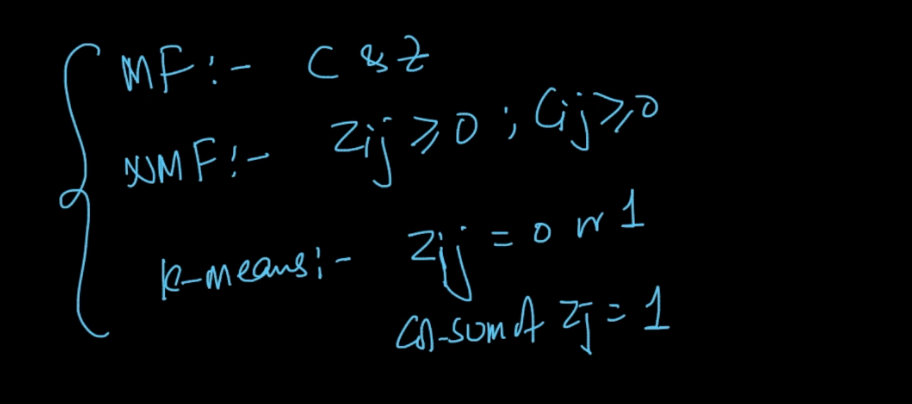 MF:- C & Z
NMF:- Zij ≥ 0 ; Cij ≥ 0
K-means:- Zij = 0 or 1
Col-sum of Zj = 1